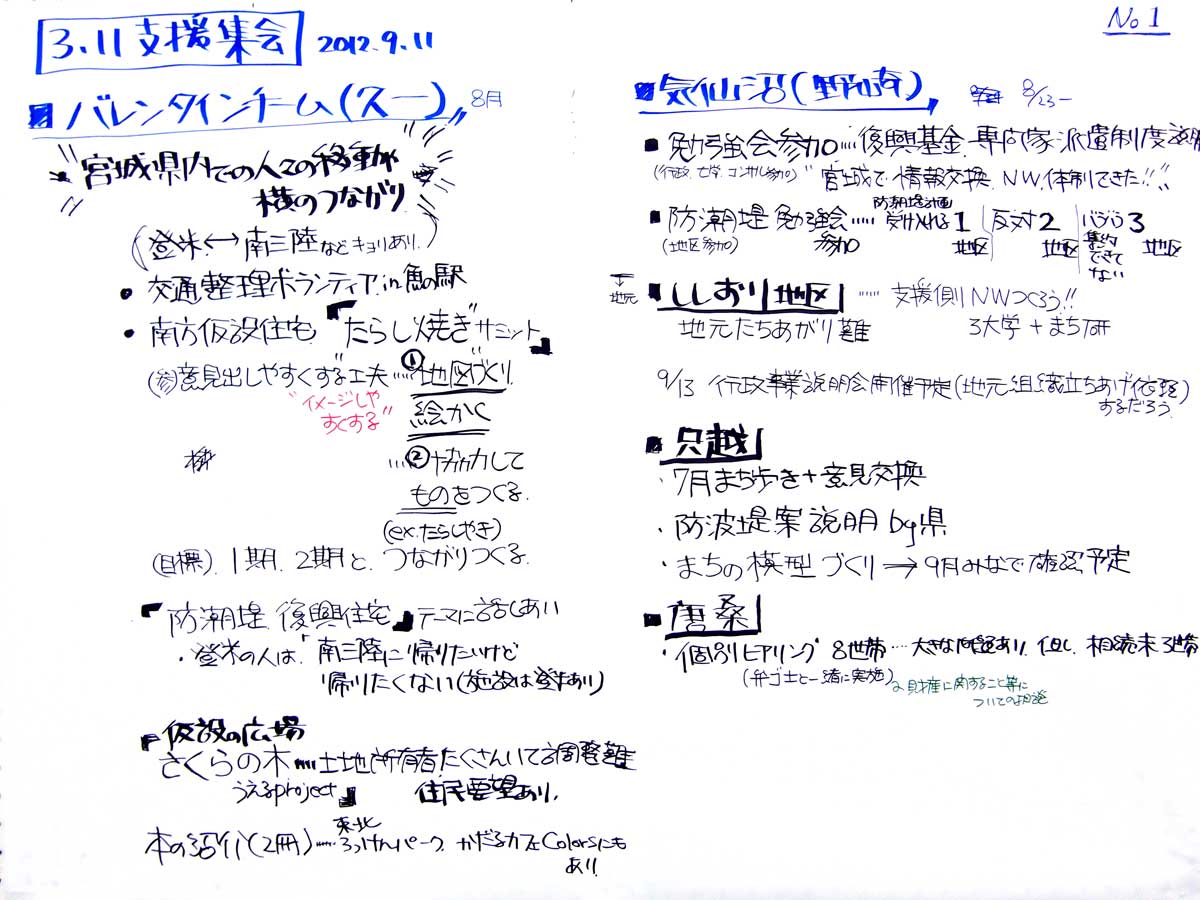 No1
3.11 支援集会 2012.9.11
■バレンタインチーム(スー) 8月
宮城県内での人々の移動や
横のつながり
(登米↔南三陸などキョリあり)
・交通整理ボランティア in 魚の駅
・南方仮設住宅『"たらし焼き"サミット』
(参)意見出しやすくする工夫…①地図づくり
"イメージしや
すくする"
絵かく
…②協力して
ものをつくる
(ex.たらしやき)
(目標)1期、2期と、つながりつくる
『防潮堤 復興住宅』テーマに話しあい
・登米の人は、「南三陸に帰りたいけど
帰りたくない(施設は登米あり)
『仮設の広場
さくらの木…土地所有者たくさんいて調整難
うえるproject』 住民要望あり
本の紹介(2冊)…東北ろっけんパーク、かだるカフェColorsにも
あり
■気仙沼(野崎) 8/23-
■勉強会参加…復興基金、専門家派遣制度説明
(行政、大学、コンサル参加) "宮城で情報交換、NW、体制できた!!"
■防潮堤勉強会…防潮堤計画 受け入れる1地区 反対2地区 バラバラ3地区
(地区参加) 参加 集約できてない
↓地元
■ししおり地区 …… 支援側NWつくろう!!
地元たちあがり難 3大学+まち研
9/13 行政事業説明会開催予定(地元組織立ちあげ依頼)
するだろう
■只越
・7月まち歩き+意見交換
・防波堤案説明 by県
・まちの模型づくり→9月みなで確認予定
■唐桑
・個別ヒアリング 8世帯…大きな問題あり、但し、相続未3世帯
(弁ゴ士と一緒に実施) 財産に関すること等に
ついての相談